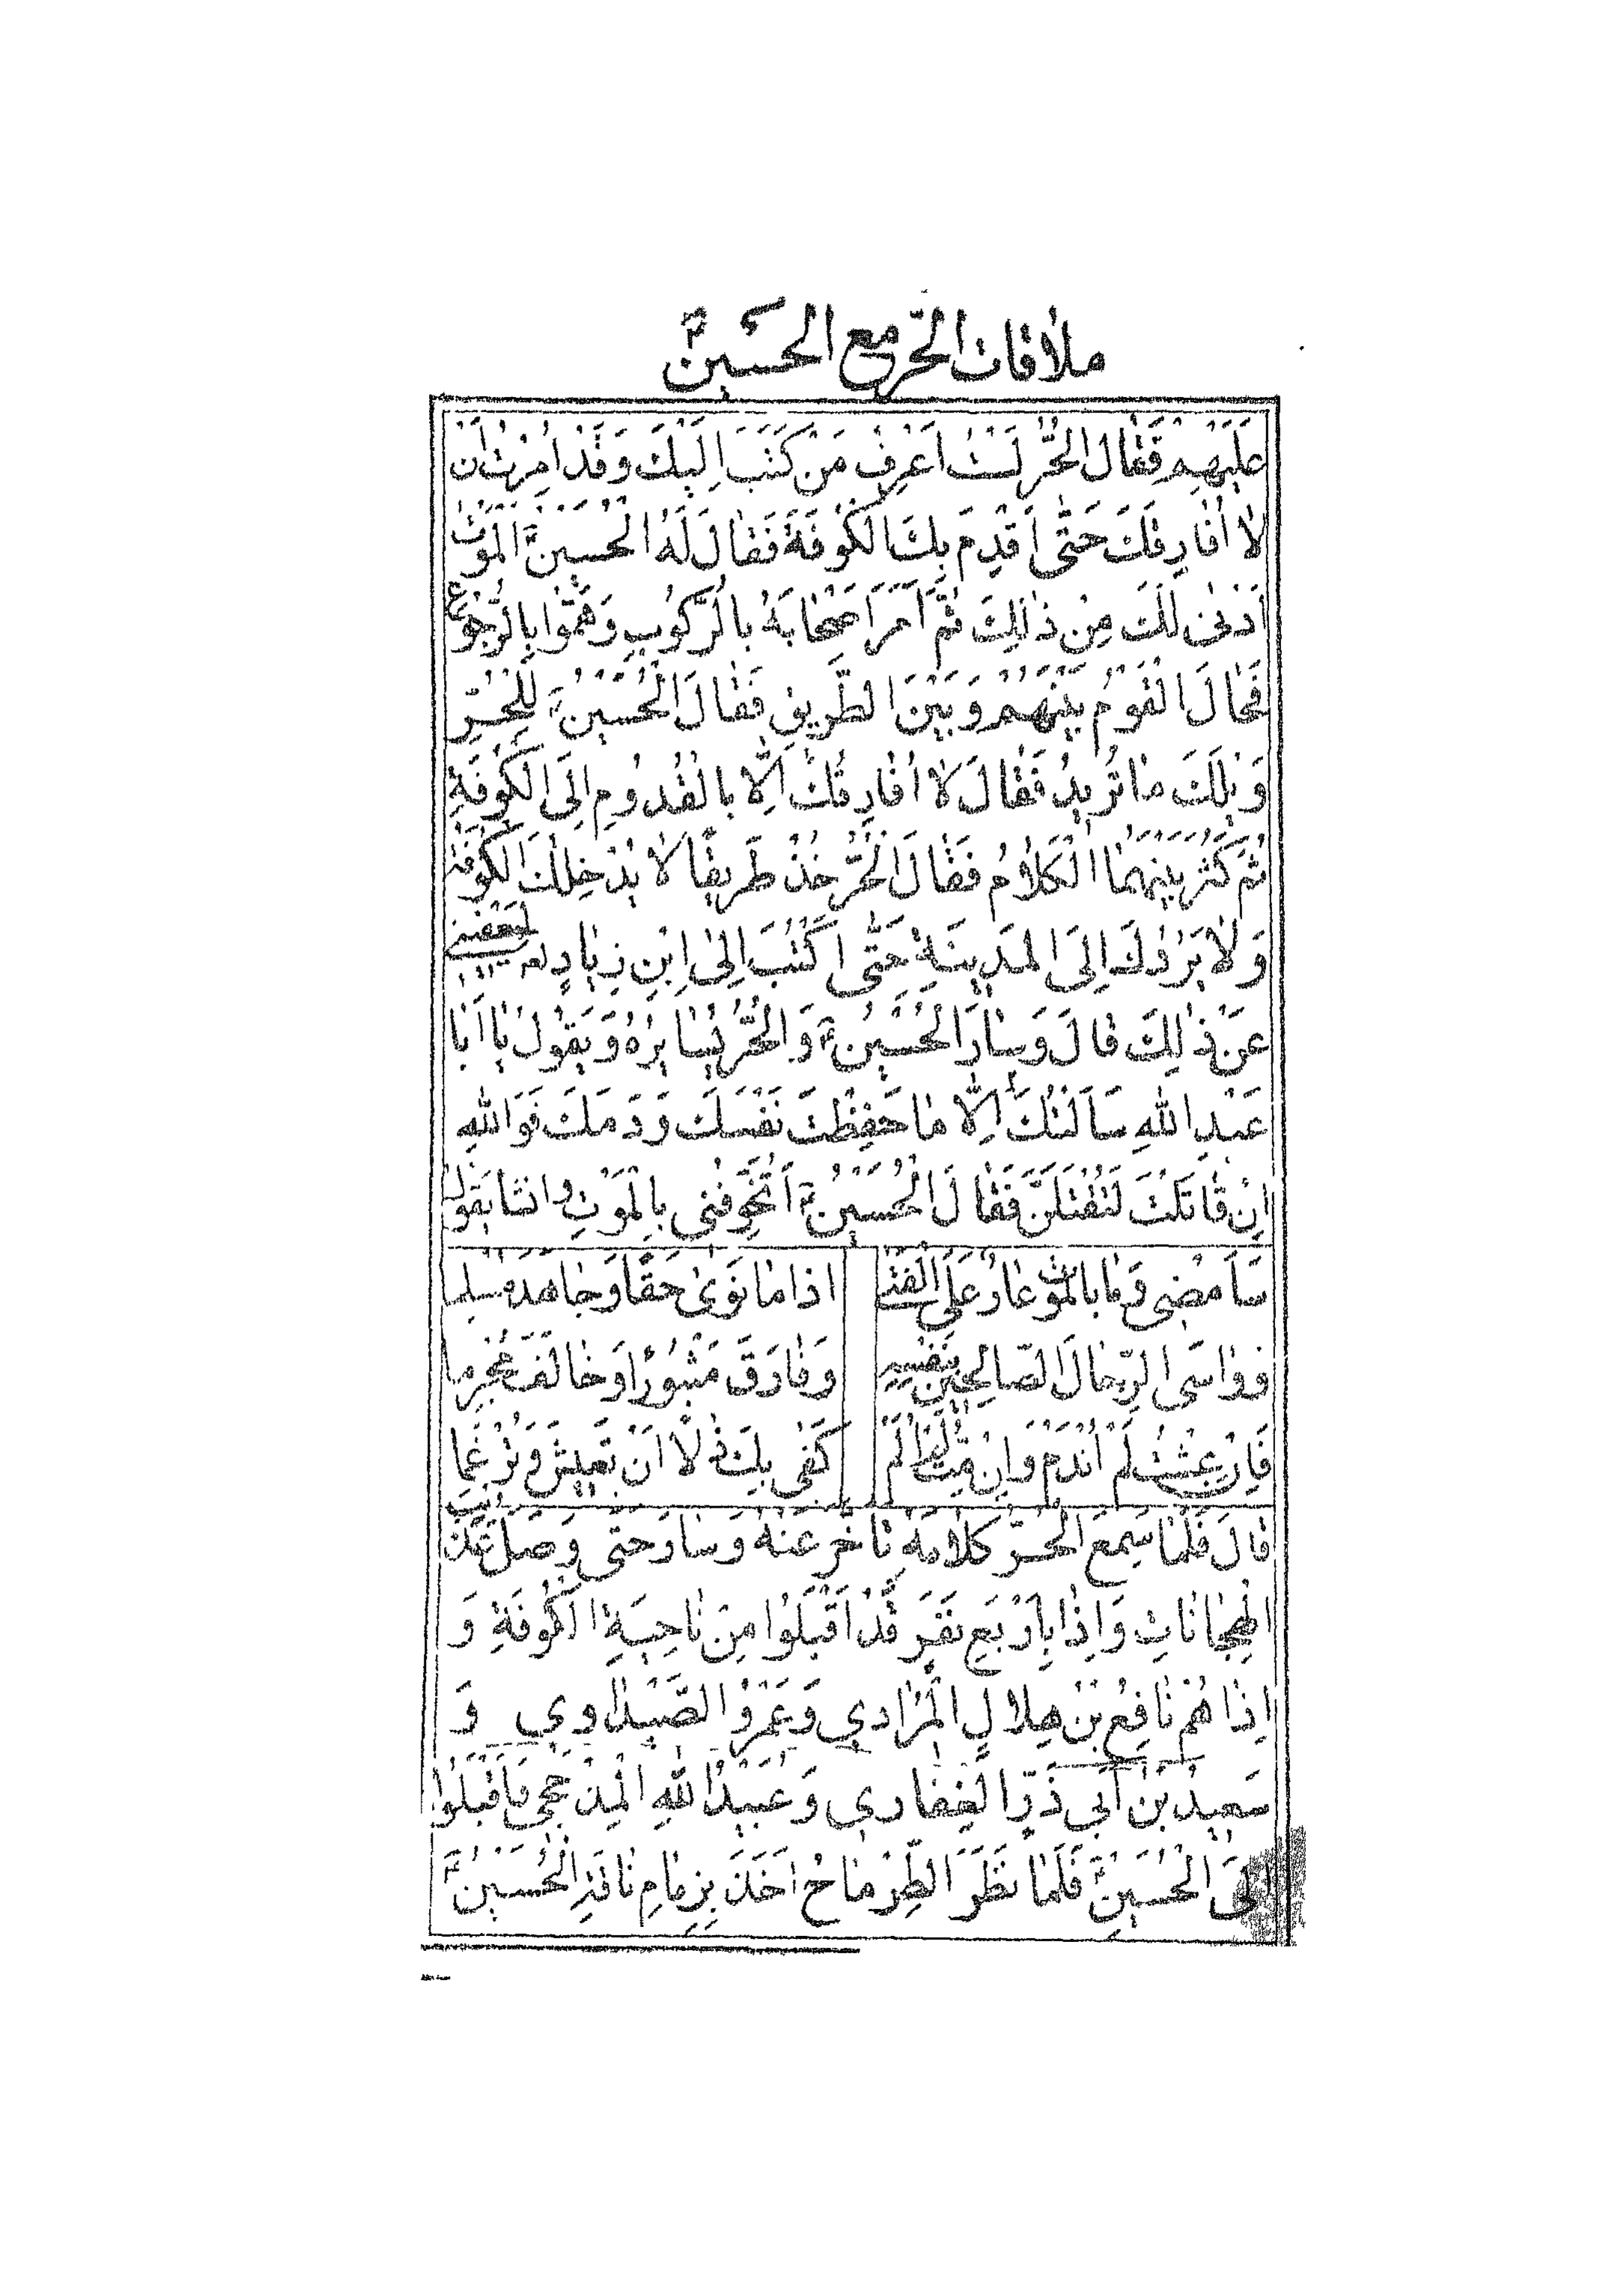 ملاقات الحرّ مع الحسين ؑ
عَلَيْهِمْ فَقَالَ الْحُرُّ لَسْتُ اَعْرِفُ مَنْ كَتَبَ اِلَيْكَ وَقَدْ اُمِرْتُ اَنْ
لا اُفارِقَكَ حَتّٰى اَقْدِمَ بِكَ الْكُوْفَةَ فَقالَ لَهُ الْحُسَيْنُ ؑ الْمَوْتُ
اَدْنىٰ لَكَ مِنْ ذٰلِكَ ثُمَّ اَمَرَ اَصْحٰابَهُ بِالرُّكُوْبِ وَهَمُّوْا بِالرُّجُوْعِ
فَحٰالَ الْقَوْمُ بَيْنَهُمْ وَبَيْنَ الطَّرِيقِ فَقٰالَ الْحُسَيْنُ ؑ لِلْحُرِّ
وَيْلَكَ مٰا تُرِيدُ فَقٰالَ لاٰ اُفٰارِقُكَ اِلّٰا بِالْقُدُوْمِ اِلَى الْكُوْفَةِ
ثُمَّ كَثُرَ بَيْنَهُمَا الْكَلاٰمُ فَقٰالَ الْحُرُّ خُذْ طَرِيقًا لاٰ يُدْخِلُكَ الْكُوْفَةَ
وَلاٰ يَرُدُّكَ اِلَى الْمَدِينَةِ حَتّٰى اَكْتُبَ اِلىٰ اِبْنِ زِيٰادٍ لعنه
عَنْ ذٰلِكَ قٰالَ وَسٰارَ الْحُسَيْنُ ؑ وَالْحُرُّ يُسٰايِرُهُ وَيَقُوْلُ يٰا اَبٰا
عَبْدِ اللهِ سَاَلْتُكَ اِلّٰا مٰا حَفِظْتَ نَفْسَكَ وَدَمَكَ فَوَاللهِ
اِنْ قٰاتَلْتَ لَتُقْتَلَنَّ فَقٰالَ الْحُسَيْنُ ؑ اَتُخَوِّفُنِي بِالْمَوْتِ وانشا يَقُوْلُ
سَاَمْضِي وَمٰا بِالْمَوْتِ عٰارٌ عَلَى الْفَتىٰ اذا مٰا نَوىٰ حَقًّا وَجٰاهَدَ مسلما
فَوٰاسَى الرِّجٰالَ الصّٰالِحِيْنَ بِنَفْسِهِ وَفٰارَقَ مَثْبُوْرًا وَخٰالَفَ مُجْرِما
فَاِنْ عِشْتُ لَمْ اُنْدَمْ وَاِنْ مِتُّ لَمْ اُلَمْ كَفىٰ بِكَ ذُلّاً اَنْ تَعِيْشَ وَتُرْغَمٰا
قٰالَ فَلَمّٰا سَمِعَ الْحُرُّ كَلاٰمَهُ تٰأَخَّرَ عَنْهُ وَسٰارَ حَتّٰى وَصَلَ عُذَيْبَ
الْهِجٰانٰاتِ وَاِذٰا بِاَرْبَعِ نَفَرٍ قَدْ اَقْبَلُوْا مِنْ نٰاحِيَةِ الْكُوفَةِ وَ
اِذٰا هُمْ نٰافِعُ بْنُ هِلٰالِ الْمُرٰادِي وَعَمْرُو الصَّيْدٰاوِي وَ
سَعِيْدُ بْنُ اَبِي ذَرِّ الْغِفٰارِي وَعُبَيْدُ اللهِ الْمِذْحَجِي فَاَقْبَلُوْا
اِلَى الْحُسَيْنِ ؑ فَلَمّٰا نَظَرَ الطِّرْمٰاحُ اَخَذَ بِزِمٰامِ نٰاقَةِ الْحُسَيْنِ ؑ